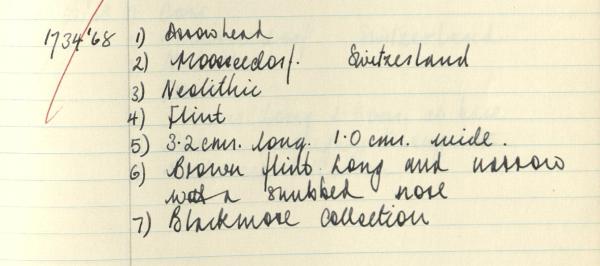 1734/'68 1) Arrowhead
2) Moosseedorf. Switzerland
3) Neolithic
4) Flint
5) 3.2 cms. long. 1.0 cms. wide.
6) Brown flint. Long and narrow
with a snubbed nose
7) Blackmore Collection